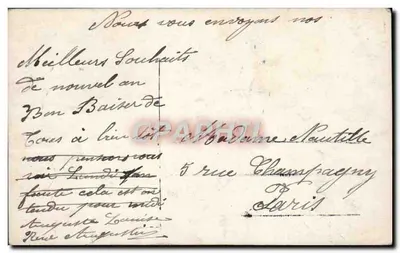 Nous vous envoyons nos
Meilleurs Souhaits
de nouvel an
Bon Baiser de
Tous à bientôt
nous pensions vous
voir Lundi
faute cela est en
tendu pour midi
Auguste Louise
René Augustine
Madame Nautille
5 rue Champagny
Paris
CPAPHIL